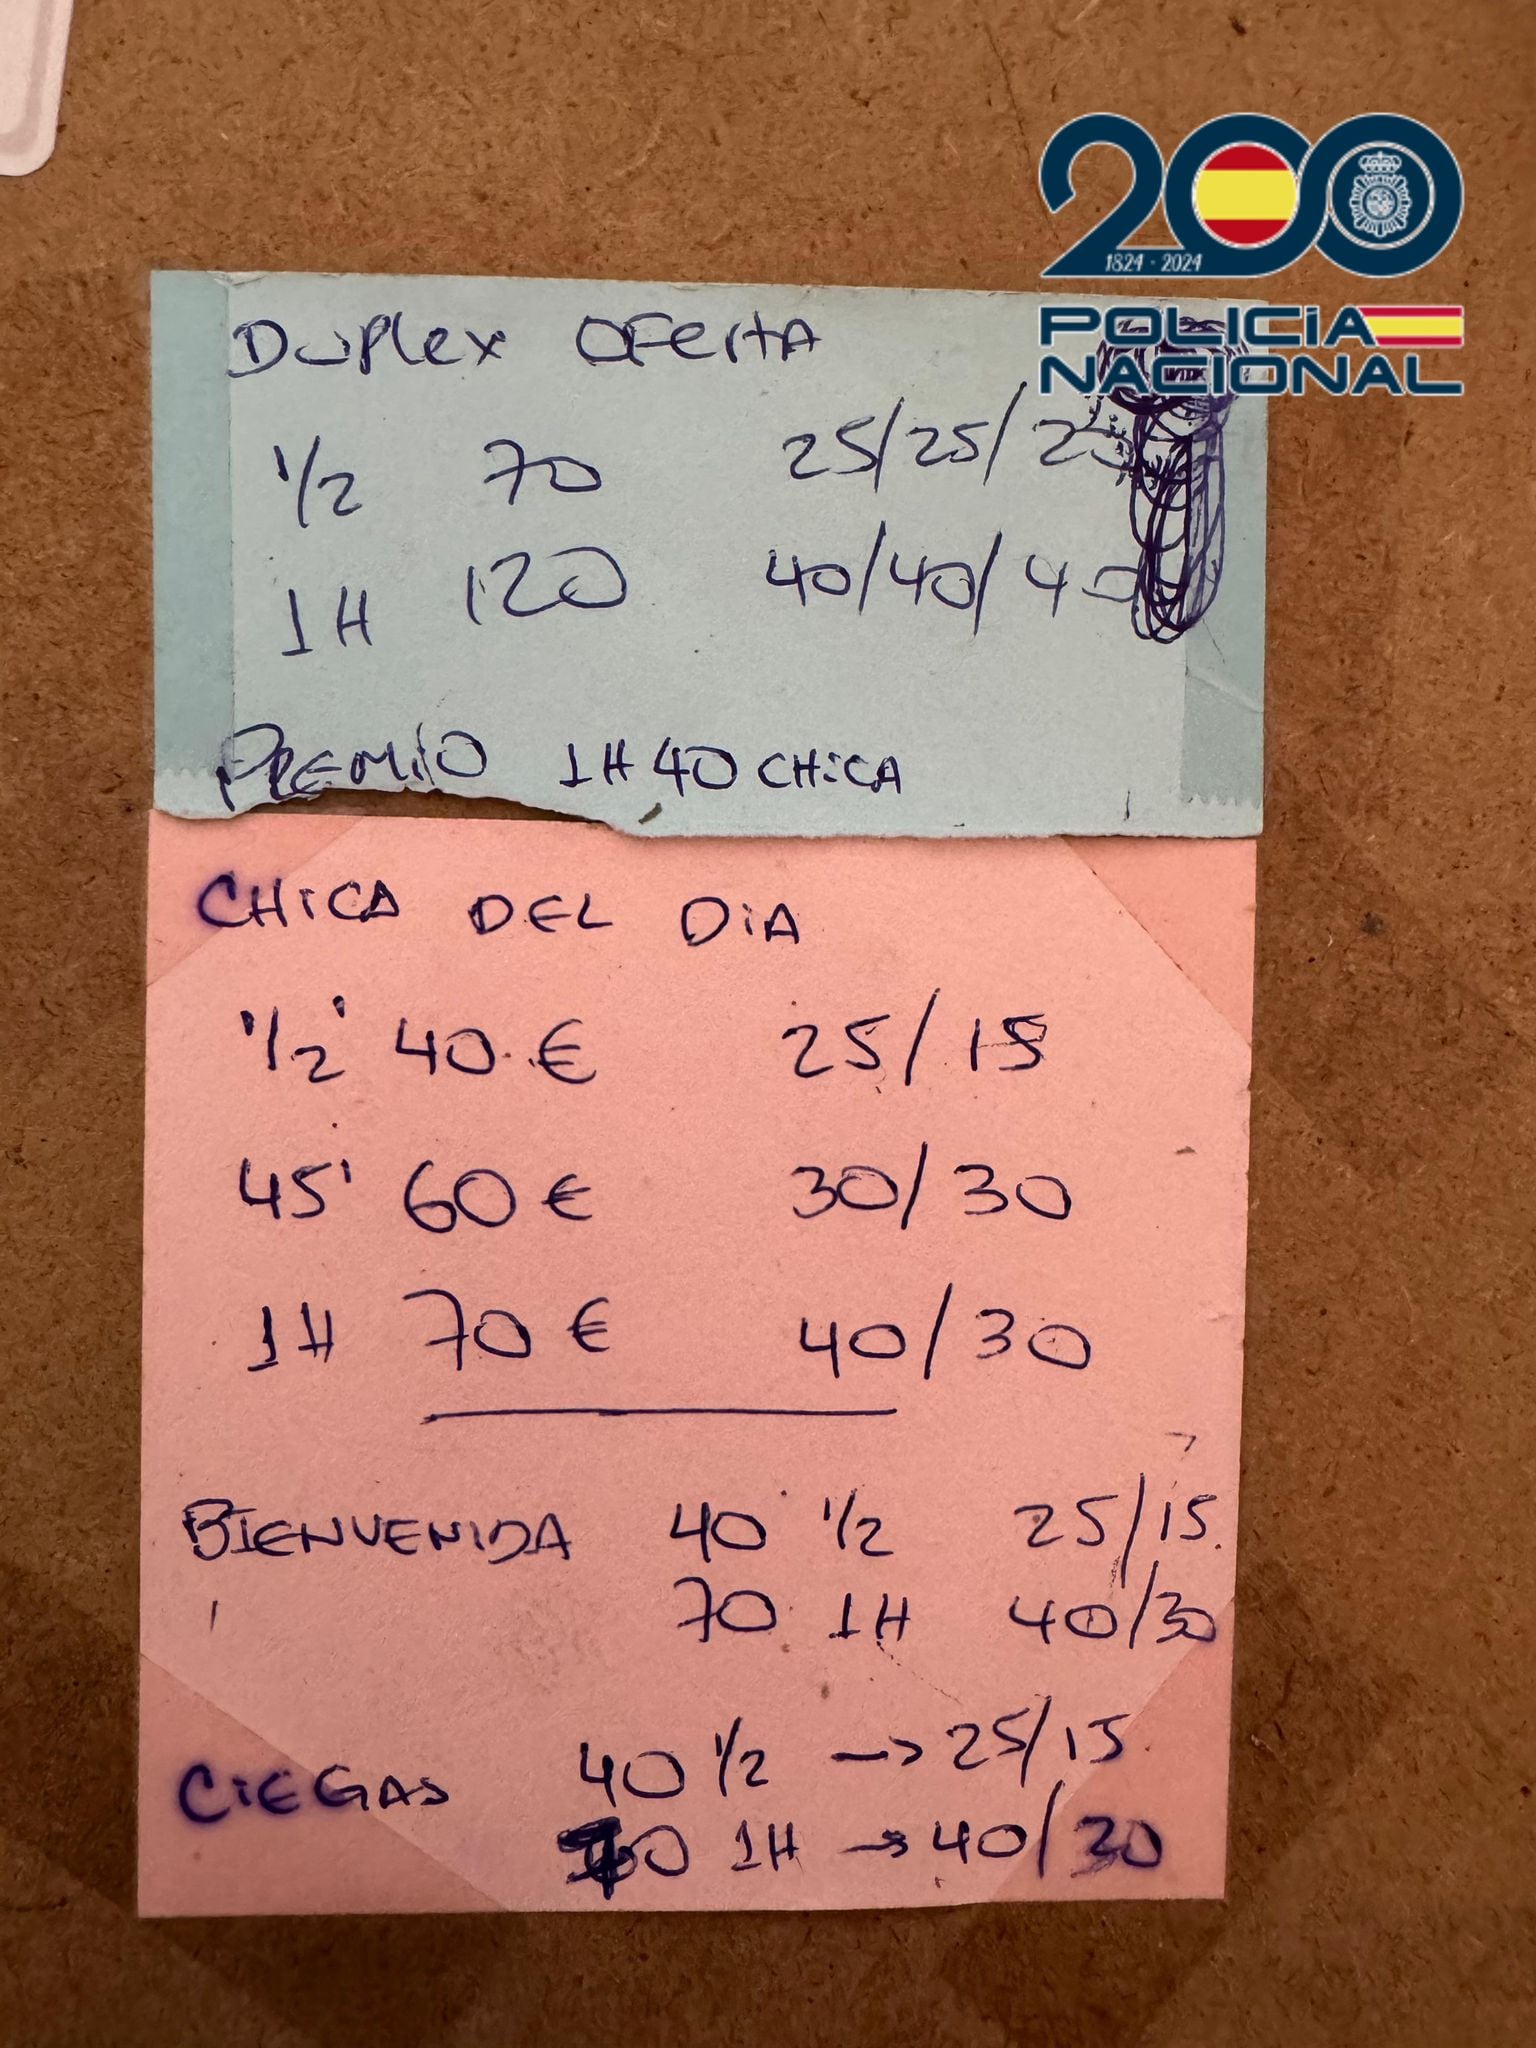 200
1824 - 2024
POLICÍA
NACIONAL
Duplex OFertA
1/2 70 25/25/25
1H 120 40/40/40
PREMiO 1H 40 CHiCA
CHiCA DEL DiA
1/2' 40 € 25/15
45' 60 € 30/30
1H 70 € 40/30
BIENVENIDA 40 1/2 25/15
70 1H 40/30
CiEGAS 40 1/2 → 25/15
70 1H → 40/30